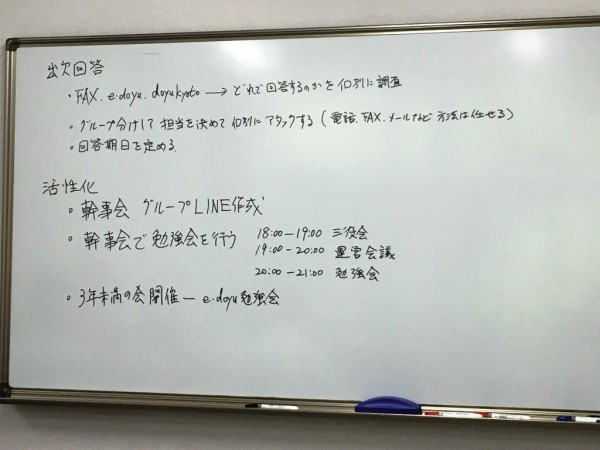 出欠回答
・FAX. e-doyu. doyukyoto → どれで回答するのかを個別に調査
・グループ分けして 担当を決めて 個別にアタックする (電話. FAX. メールなど 方法は任せる)
・回答期日を定める.
活性化
・幹事会 グループLINE作成
・幹事会で勉強会を行う 18:00-19:00 三役会
19:00-20:00 運営会議
20:00-21:00 勉強会
・3年未満の会開催 - e-doyu勉強会